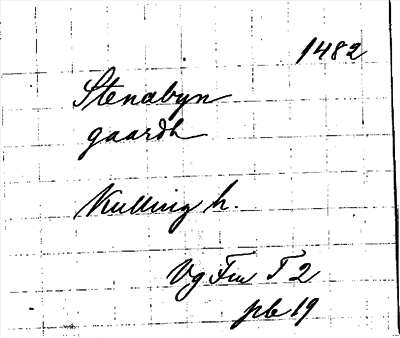 1482
Stenabyn
gaardh
Kulling h.
Vg Fm T 2
pb 19